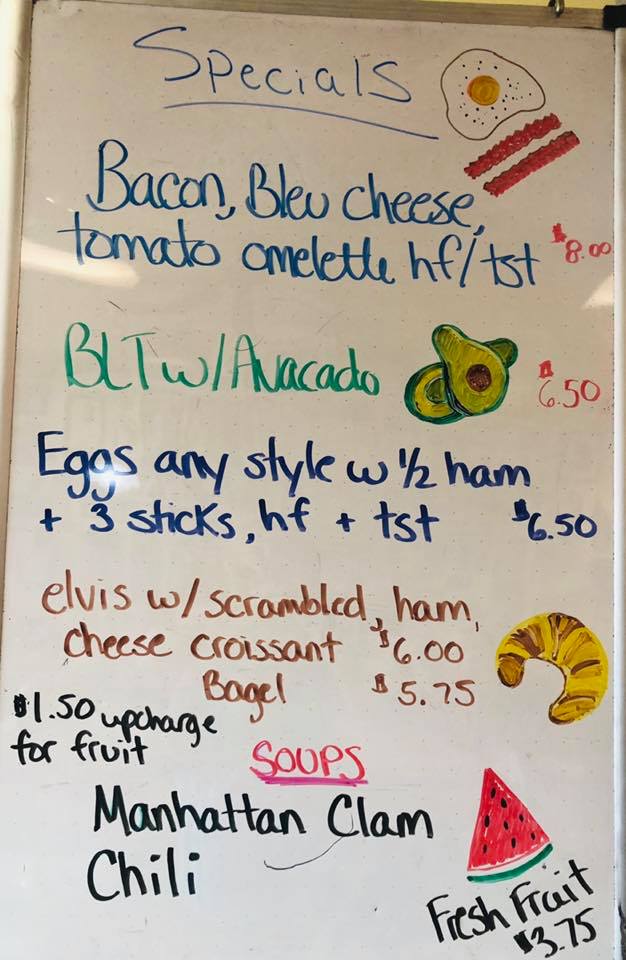 Specials
Bacon, Bleu cheese,
tomato omelette hf/tst $8.00
BLT w/Avacado $6.50
Eggs any style w 1/2 ham
+ 3 sticks, hf + tst $6.50
elvis w/scrambled, ham,
cheese croissant $6.00
Bagel $5.75
$1.50 upcharge
for fruit
SOUPS
Manhattan Clam
Chili
Fresh Fruit
$3.75